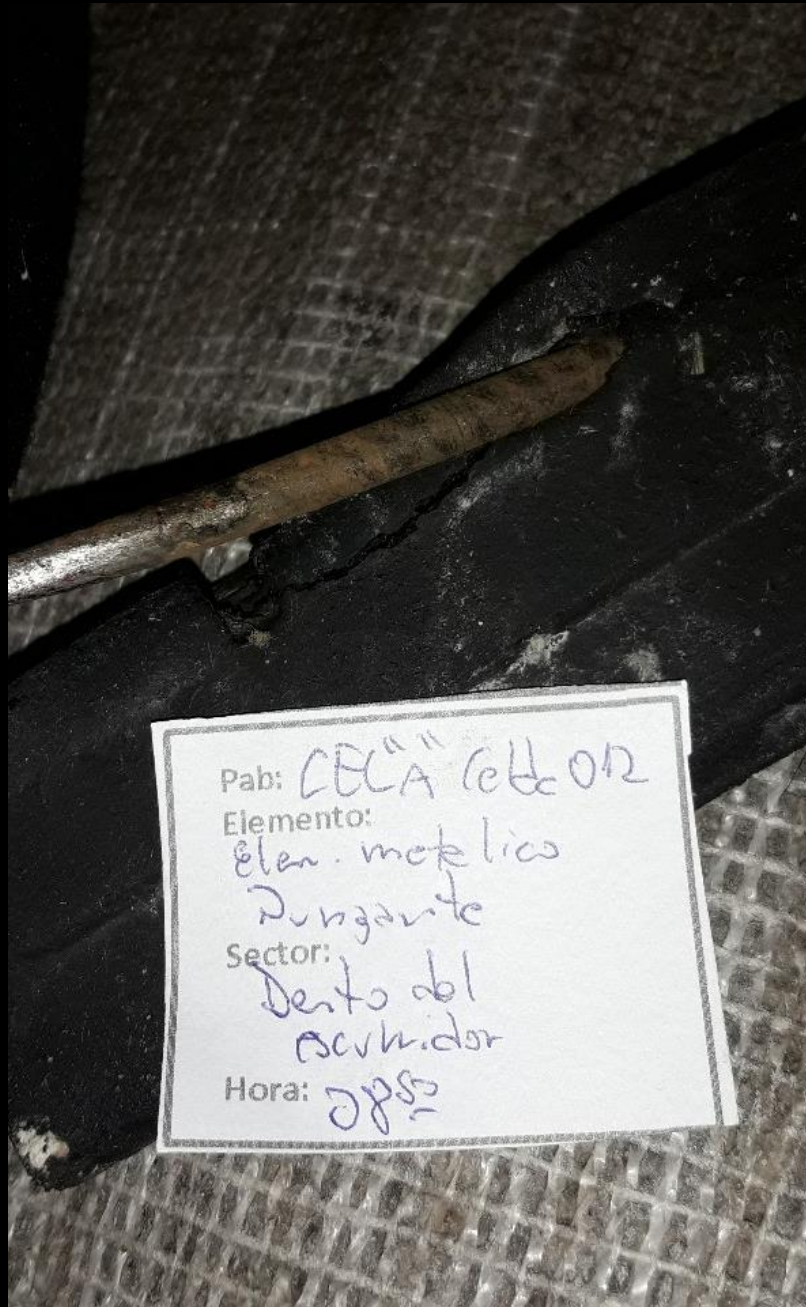 Pab: CEC "A" Celda 012
Elemento:
Elem. metalico
Punzante
Sector:
Dentro del
escurridor
Hora: 0850